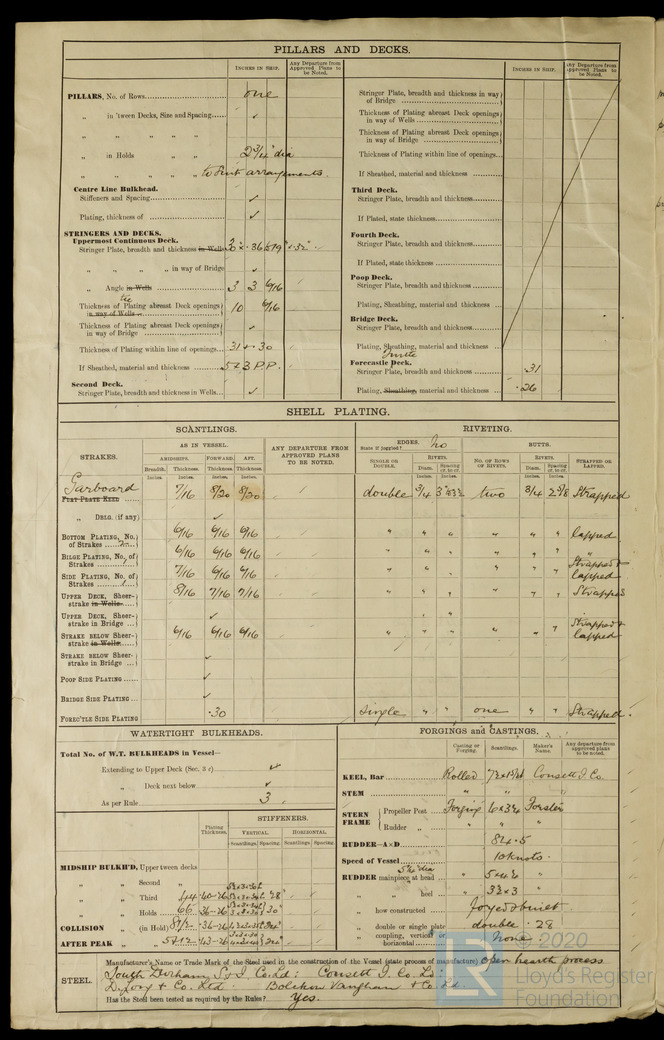 PILLARS AND DECKS.
INCHES IN SHIP.
Any Departure from Approved Plans to be Noted.
PILLARS, No. of Rows one
„ in 'tween Decks, Size and Spacing ✓
„ „ „ „
„ in Holds „ „ 2 3/4" dia
„ „ „ „ to Suit arrangements.
Centre Line Bulkhead.
Stiffeners and Spacing ✓
Plating, thickness of ✓
STRINGERS AND DECKS.
Uppermost Continuous Deck.
Stringer Plate, breadth and thickness in Wells
„ „ „ „ in way of Bridge ✓
„ Angle in Wells 3 3 6/16
Thickness of Plating abreast Deck openings in way of Wells 10 6/16
Thickness of Plating abreast Deck openings in way of Bridge ✓
Thickness of Plating within line of openings .31 + .30
If Sheathed, material and thickness 5 x 3 P.P.
Second Deck.
Stringer Plate, breadth and thickness in Wells ✓
INCHES IN SHIP.
Any Departure from Approved Plans to be Noted.
Stringer Plate, breadth and thickness in way of Bridge
Thickness of Plating abreast Deck openings in way of Wells
Thickness of Plating abreast Deck openings in way of Bridge
Thickness of Plating within line of openings
If Sheathed, material and thickness
Third Deck.
Stringer Plate, breadth and thickness
If Plated, state thickness
Fourth Deck.
Stringer Plate, breadth and thickness
If Plated, state thickness
Poop Deck.
Stringer Plate, breadth and thickness
Plating, Sheathing, material and thickness
Bridge Deck.
Stringer Plate, breadth and thickness
Plating, Sheathing, material and thickness
Forecastle Deck.
Stringer Plate, breadth and thickness .31
Plating, Sheathing, material and thickness .26
SHELL PLATING.
SCANTLINGS.
RIVETING.
STRAKES.
AS IN VESSEL.
AMIDSHIPS. FORWARD. AFT.
Breadth. Thickness. Thickness. Thickness.
ANY DEPARTURE FROM APPROVED PLANS TO BE NOTED.
EDGES. No
State if joggled?
SINGLE OR DOUBLE.
RIVETS.
Diam. Spacing cr. to cr.
BUTTS.
NO. OF ROWS OF RIVETS.
RIVETS.
Diam. Spacing cr. to cr.
STRAPPED OR LAPPED.
Inches. Inches. Inches. Inches. Inches. Inches. Inches. Inches.
Garboard
FLAT PLATE KEEL 7/16 8/20 8/20 double 3/4 two 3/4 2 5/8 Strapped
„ DBLG. (if any) ✓
BOTTOM PLATING, No. of Strakes 6/16 6/16 6/16 „ „ „ „ „ „ lapped
BILGE PLATING, No. of Strakes 6/16 6/16 6/16 „ „ „ „ „ „ „
SIDE PLATING, No. of Strakes 7/16 6/16 6/16 „ „ „ „ „ „ Strapped & lapped
UPPER DECK, Sheerstrake in Wells 8/16 7/16 7/16 „ „ „ „ „ „ Strapped
UPPER DECK, Sheerstrake in Bridge ✓
STRAKE BELOW Sheerstrake in Wells 6/16 6/16 6/16 „ „ „ „ „ „ Strapped & lapped
STRAKE BELOW Sheerstrake in Bridge ✓
POOP SIDE PLATING ✓
BRIDGE SIDE PLATING ✓
FORECTLE SIDE PLATING .30 single „ „ one „ „ Strapped.
WATERTIGHT BULKHEADS.
Total No. of W.T. BULKHEADS in Vessel—
Extending to Upper Deck (Sec. 3 c) ✓
„ Deck next below ✓
As per Rule 3
Plating Thickness.
STIFFENERS.
VERTICAL. HORIZONTAL.
Scantlings. Spacing. Scantlings. Spacing.
MIDSHIP BULKH'D, Upper tween decks
„ „ Second „
„ „ Third „
„ „ Holds
COLLISION „ (in Hold)
AFTER PEAK „
FORGINGS and CASTINGS.
Casting or Forging. Scantlings. Maker's Name. Any departure from approved plans to be noted.
KEEL, Bar Rolled Consett I. Co.
STEM „ „ „
STERN FRAME
Propeller Post Forging 6 x 3 1/2 Forster
Rudder „ „ „ „
RUDDER—A×D 84.5
Speed of Vessel 10 knots.
RUDDER mainpiece at head
„ „ heel 3 1/2 x 3 „
„ how constructed forged & built
„ double or single plate double .28
„ coupling, vertical or horizontal none
STEEL.
Manufacturer's Name or Trade Mark of the Steel used in the construction of the Vessel (state process of manufacture) open hearth process
South Durham S & I. Co. Ld: Consett I. Co. Ld:
D. & Co. Ltd. Bolckow Vaughan & Co. Ld.
Has the Steel been tested as required by the Rules? Yes.
© 2020
Lloyd's Register
Foundation